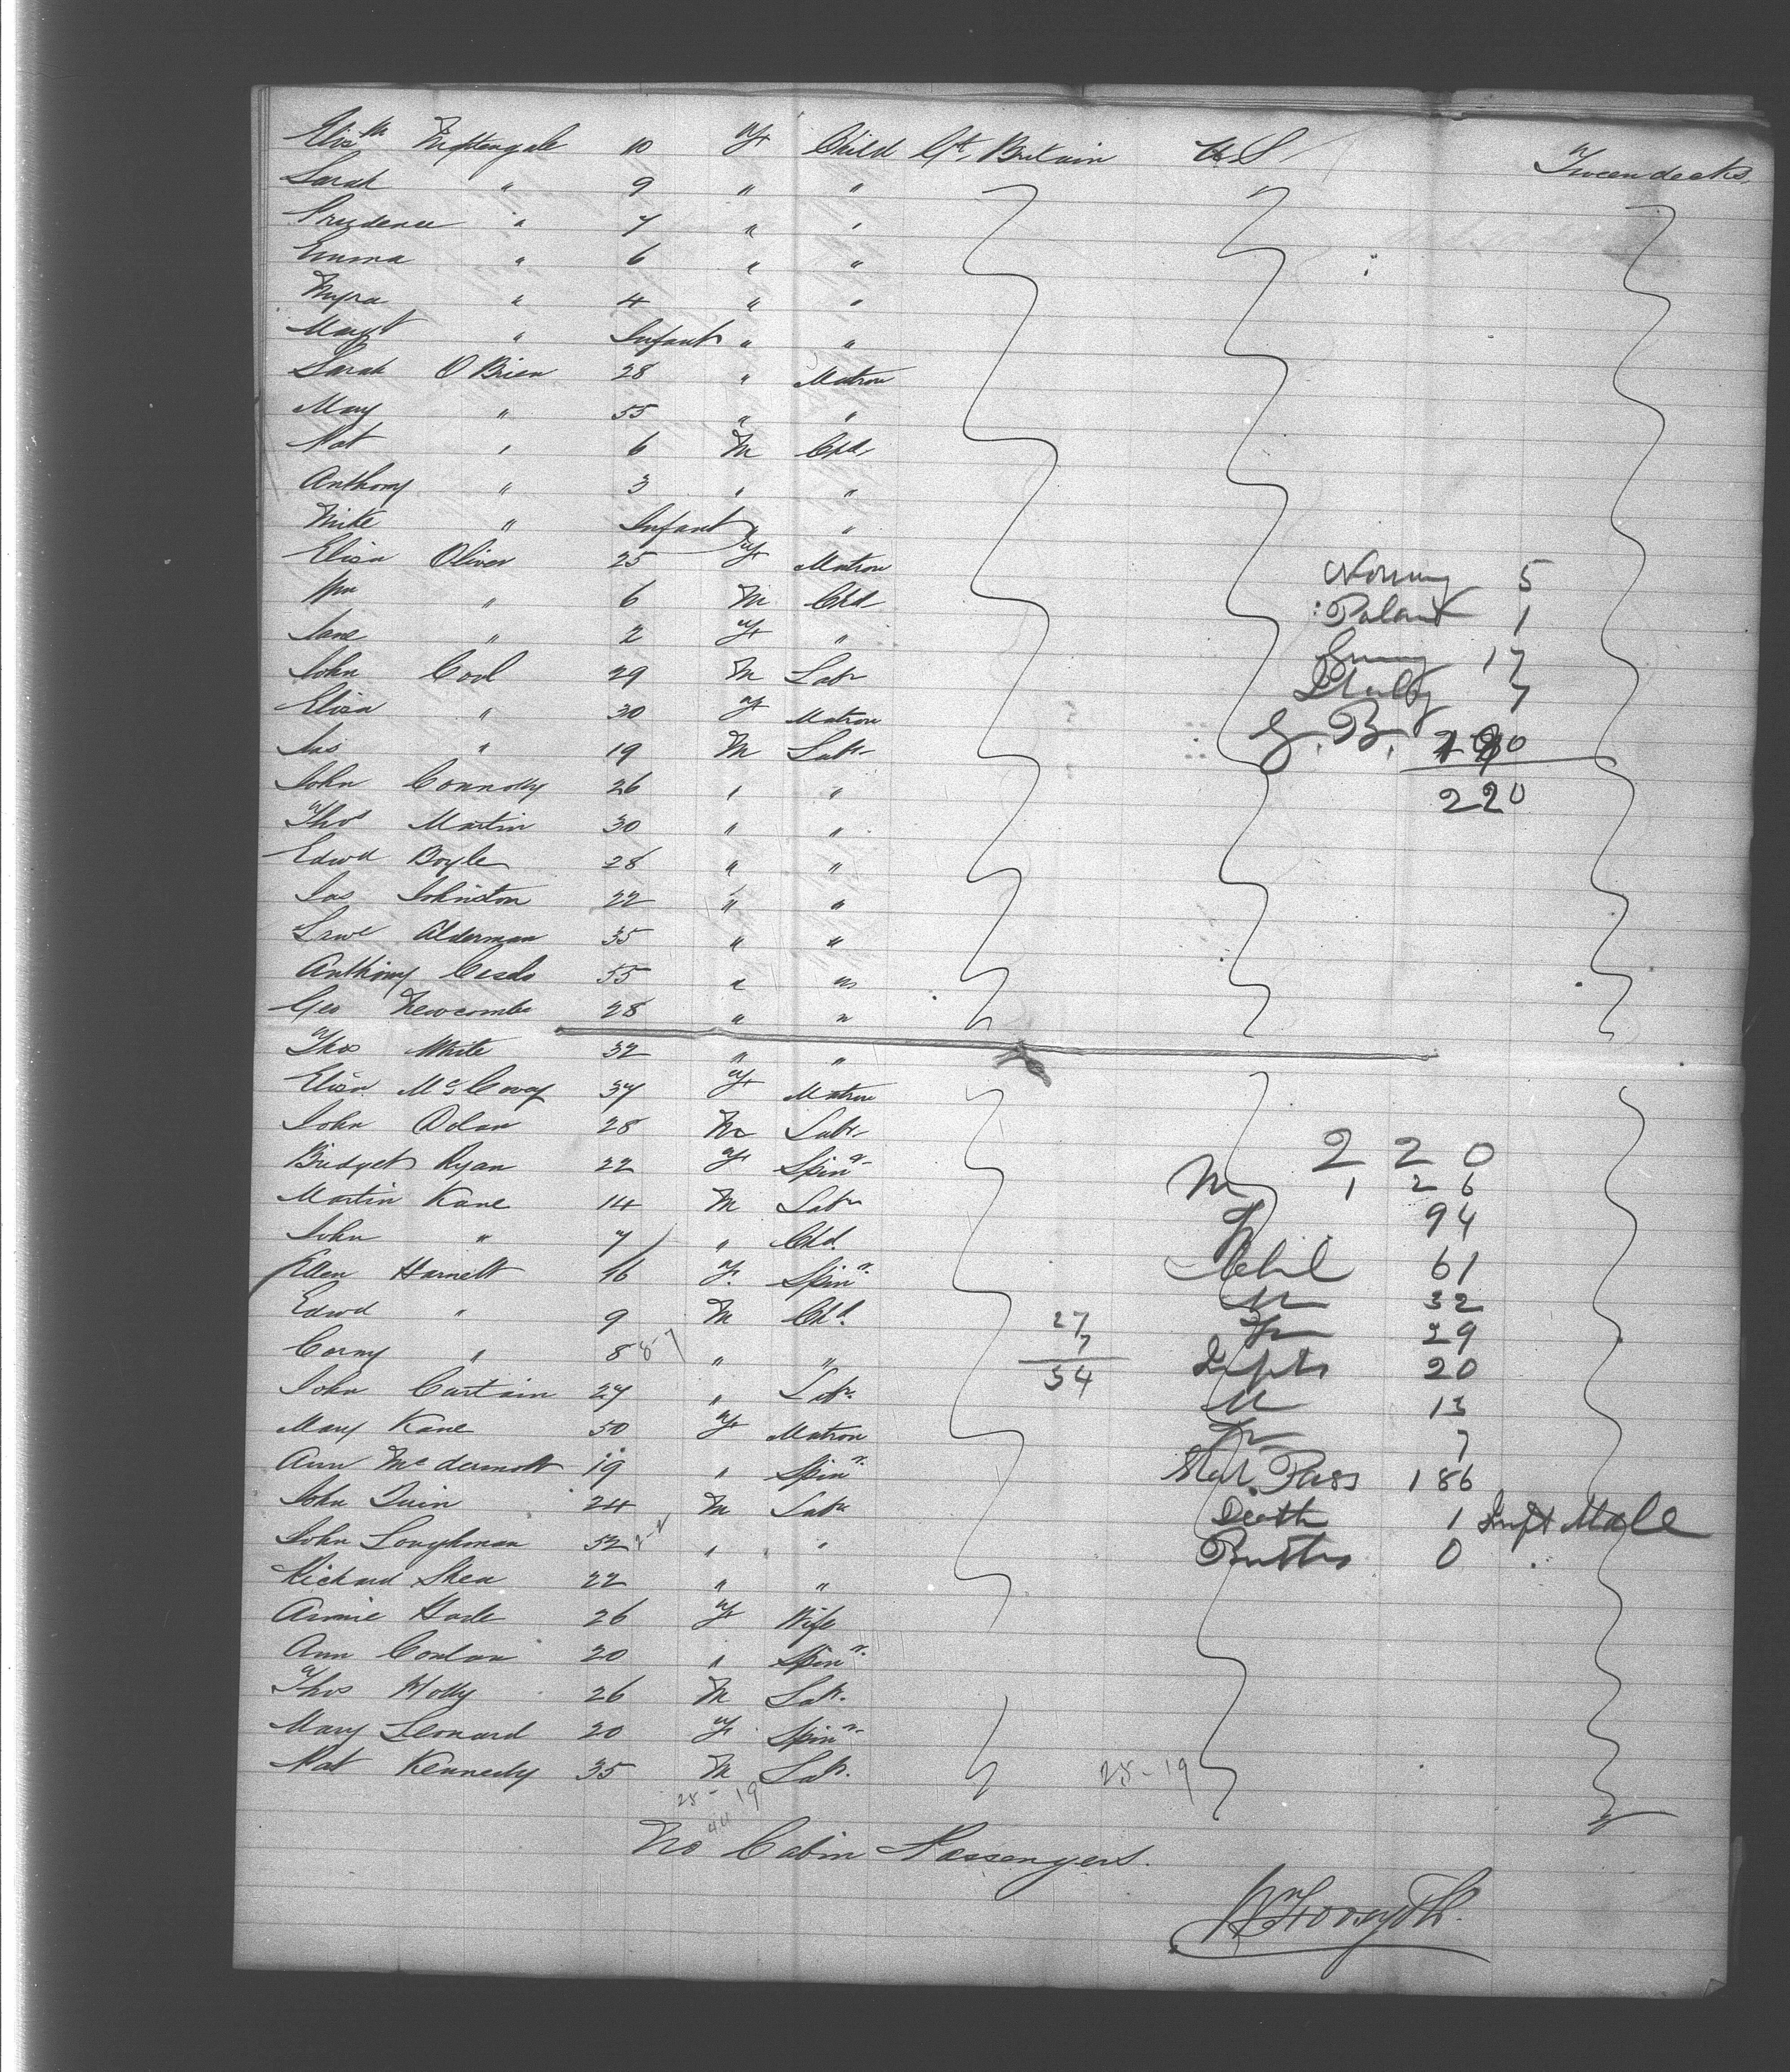 Elizth Nightengale 10 F Child Gt. Britain U S Tween decks
Sarah " 9 " "
Prudence " 7 " "
Emma " 6 " "
Myra " 4 " "
Margt " Infant " "
Sarah O Brien 28 " Matron
Mary " 55 " "
Pat " 6 M Chd
Anthony " 3 " "
Mike " Infant " "
Eliza Oliver 25 F Matron
Wm " 6 M Chd
Jane " 2 F "
John Cool 29 M Labr
Eliza " 30 F Matron
Jas " 19 M Labr
John Connolly 26 " "
Thos Martin 30 " "
Edwd Boyle 28 " "
Jas Johnston 22 " "
Lawe Alderman 35 " "
Anthony 55 " "
Geo Newcombe 28 " "
Thos White 32 " "
Eliza 37 F Matron
John Dolan 28 M Labr
Bridget Ryan 22 F Spinr
Martin Kane 14 M Labr
John " 7 " Chd.
Ellen Harnett 16 F Spinr
Edwd " 9 M Chd.
Corny " 8 8-7 " "
John Curtain 27 " Labr
Mary Kane 50 F Matron
Ann McDermott 19 " Spinr
John Quin 24 M Labr
John Loughman 52 " "
Richard Shea 22 " "
Annie 26 F Wife
Ann Conlan 20 " Spinr
Thos Holly 26 M Labr
Mary Leonard 20 F Spinr
Pat Kennedy 35 M Labr
Norway 5
1
17
7
G. B. 190
220
220
M 126
F 94
Chil 61
M 32
F 29
Infts 20
M 13
F 7
Stat. Pass 186
Death 1 Inft Male
Births 0
27
7
34
28-19
28-19
44
No Cabin Passengers.
W Forsyth.